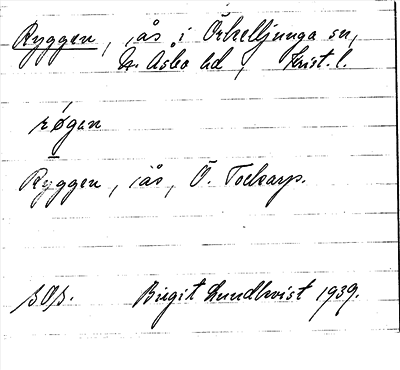 Ryggen, ås i Örkelljunga sn,
N. Åsbo hd, Krist. l.
røgen
Ryggen, ås, Ö. Tockarp.
s. 0/8.
Birgit Lundkvist 1939.